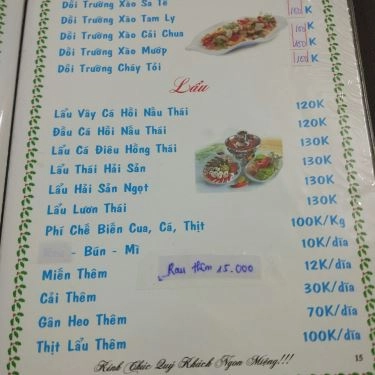 Dồi Trường Xào Sa Tế
Dồi Trường Xào Tam Ly
Dồi Trường Xào Cải Chua
Dồi Trường Xào Mướp
Dồi Trường Cháy Tỏi
Lẩu
Lẩu Vây Cá Hồi Nấu Thái 120K
Đầu Cá Hồi Nấu Thái 120K
Lẩu Cá Điêu Hồng Thái 130K
Lẩu Thái Hải Sản 130K
Lẩu Hải Sản Ngọt 130K
Lẩu Lươn Thái 130K
Phí Chế Biến Cua, Cá, Thịt 100K/Kg
- Bún - Mì 10K/dĩa
Miến Thêm 12K/dĩa
Rau thêm 15.000
Cải Thêm 30K/dĩa
Gân Heo Thêm 70K/dĩa
Thịt Lẩu Thêm 100K/dĩa
Kính Chúc Quý Khách Ngon Miệng!!! 15